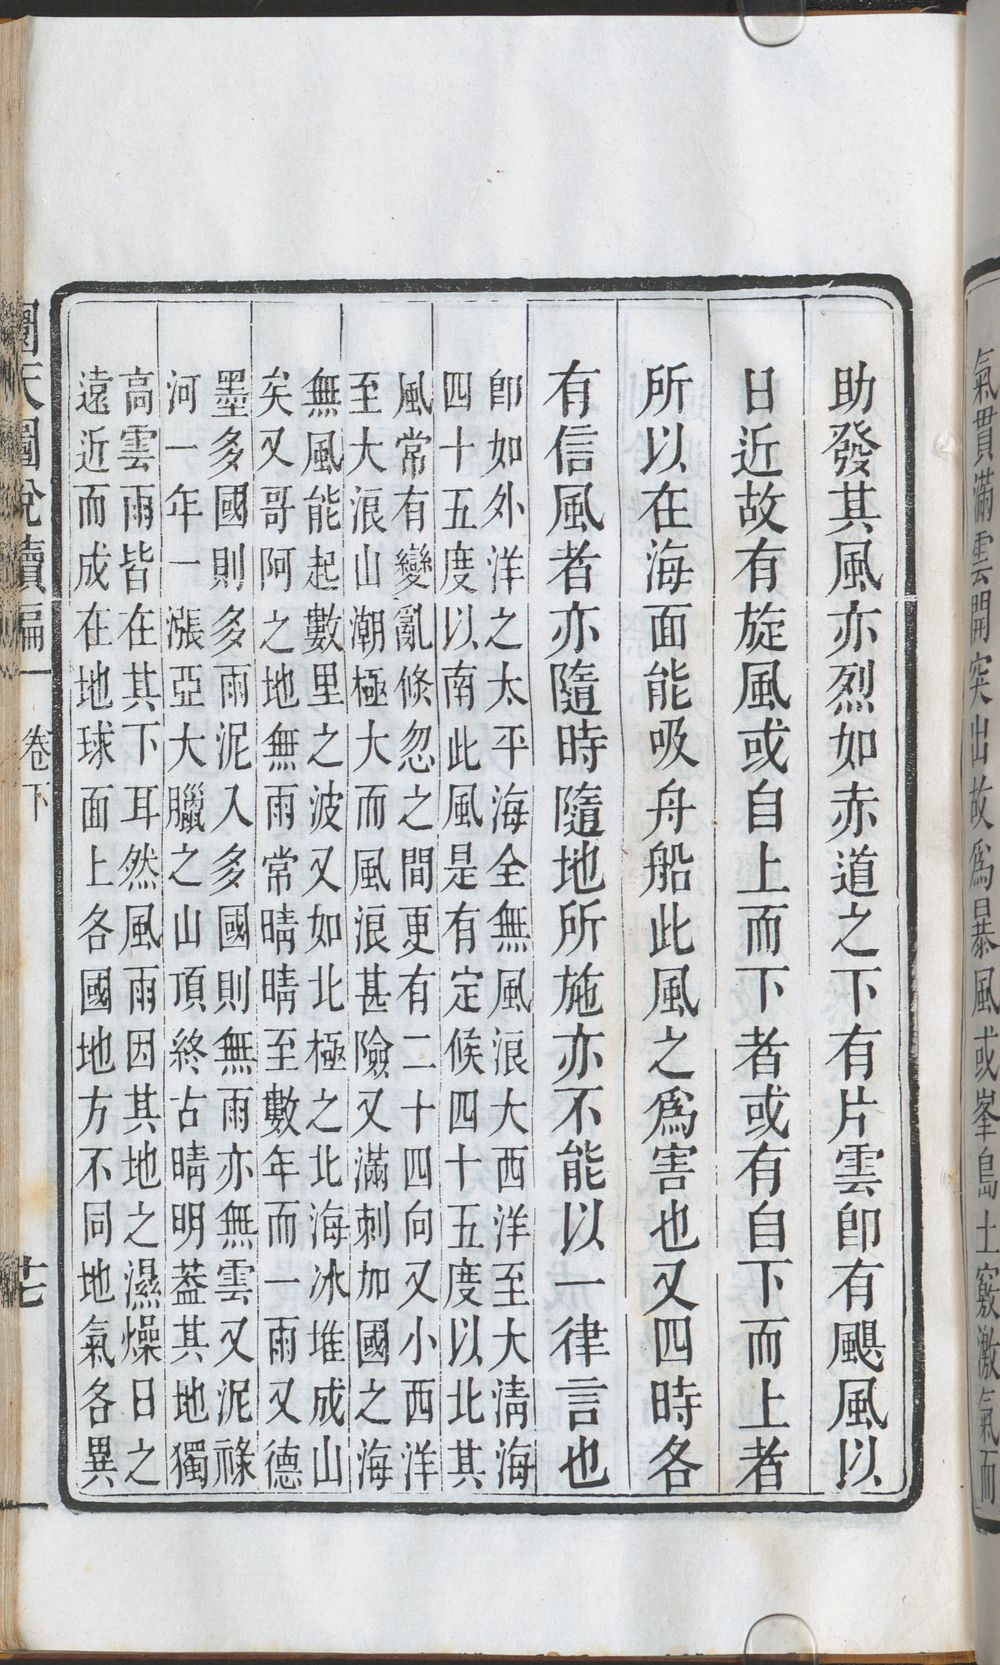 氣貫滿雲開突出故爲暴風或峯島土竅激氣而
助發其風亦烈如赤道之下有片雲卽有颶風以
日近故有旋風或自上而下者或有自下而上者
所以在海面能吸舟船此風之爲害也又四時各
有信風者亦隨時隨地所施亦不能以一律言也
卽如外洋之太平海全無風浪大西洋至大淸海
四十五度以南此風是有定候四十五度以北其
風常有變亂倏忽之間更有二十四向又小西洋
至大浪山潮極大而風浪甚險又滿剌加國之海
無風能起數里之波又如北極之北海冰堆成山
矣又哥阿之地無雨常晴晴至數年而一雨又德
墨多國則多雨泥入多國則無雨亦無雲又泥祿
河一年一漲亞大臘之山頂終古晴明葢其地獨
高雲雨皆在其下耳然風雨因其地之濕燥日之
遠近而成在地球面上各國地方不同地氣各異
圜天圖說續編 卷下 廿七